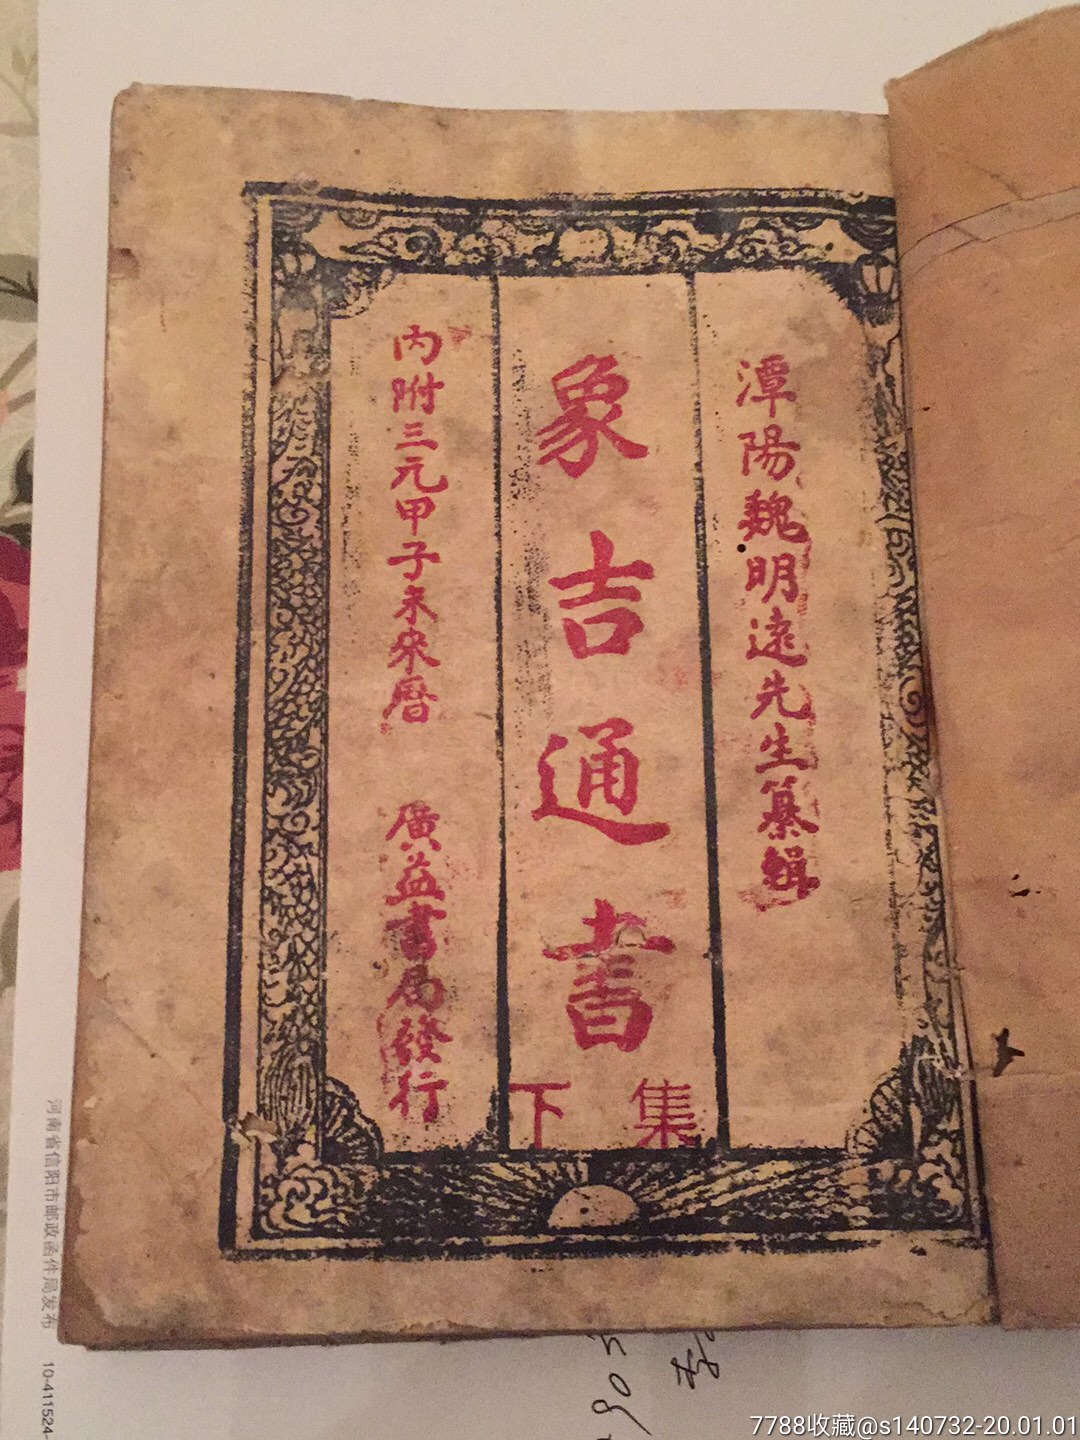 潭陽魏明遠先生纂輯
象吉通書
下集
內附三元甲子未來曆
廣益書局發行
河南省信阳市邮政函件局发布 10-411524-
7788收藏@s140732-20.01.01